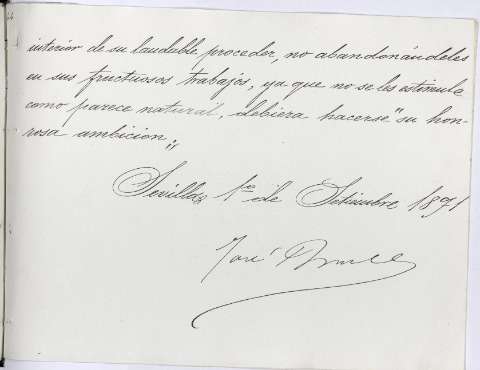 interior de su laudable proceder, no abandonándoles
en sus fructuosos trabajos, ya que no se les estimula
como parece natural, debiera hacerse "su hon-
rosa ambicion."
Sevilla 1º de Setiembre 1891
José